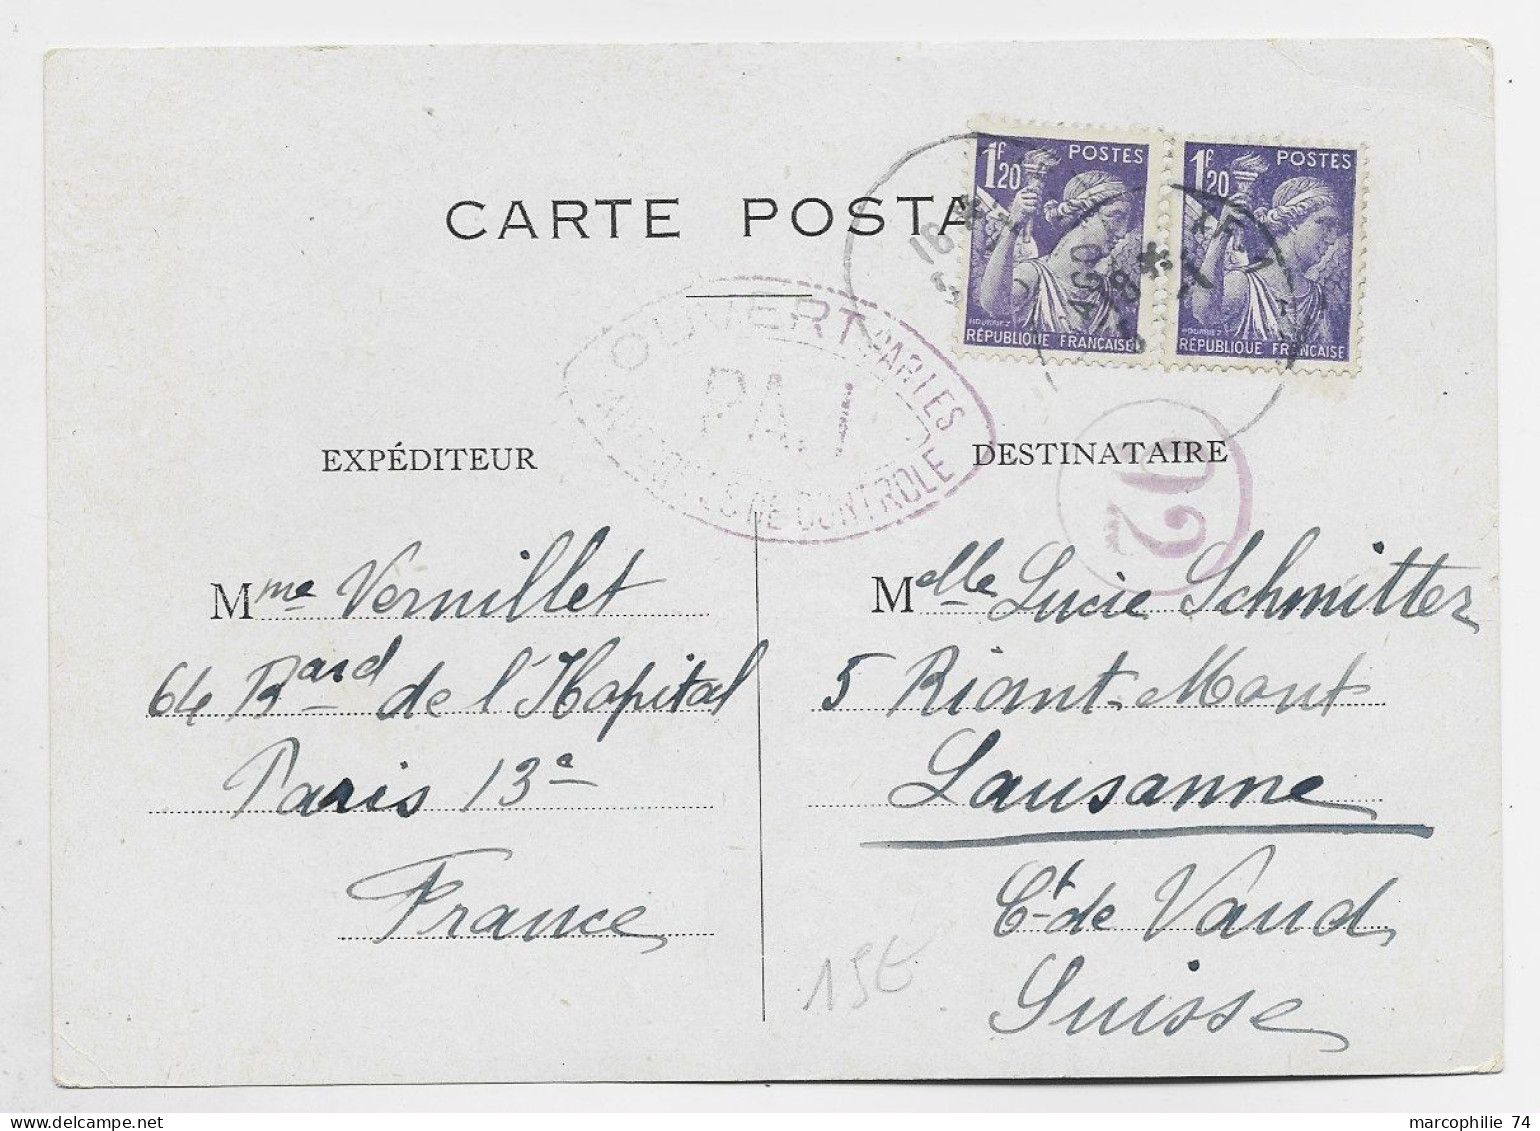 CARTE POSTA
1F20 POSTES
HOURRIEZ
RÉPUBLIQUE FRANÇAISE
1F20 POSTES
HOURRIEZ
RÉPUBLIQUE FRANÇAISE
OUVERT PAR LES
PA. 1
AUTORITÉS DE CONTROLE
92
EXPÉDITEUR
Mme Vernillet
64 Bard de l'Hopital
Paris 13e
France
DESTINATAIRE
Melle Lucie Schmitter
5 Riant-Mont
Lausanne
Ct de Vaud
Suisse
15€
marcophilie 74